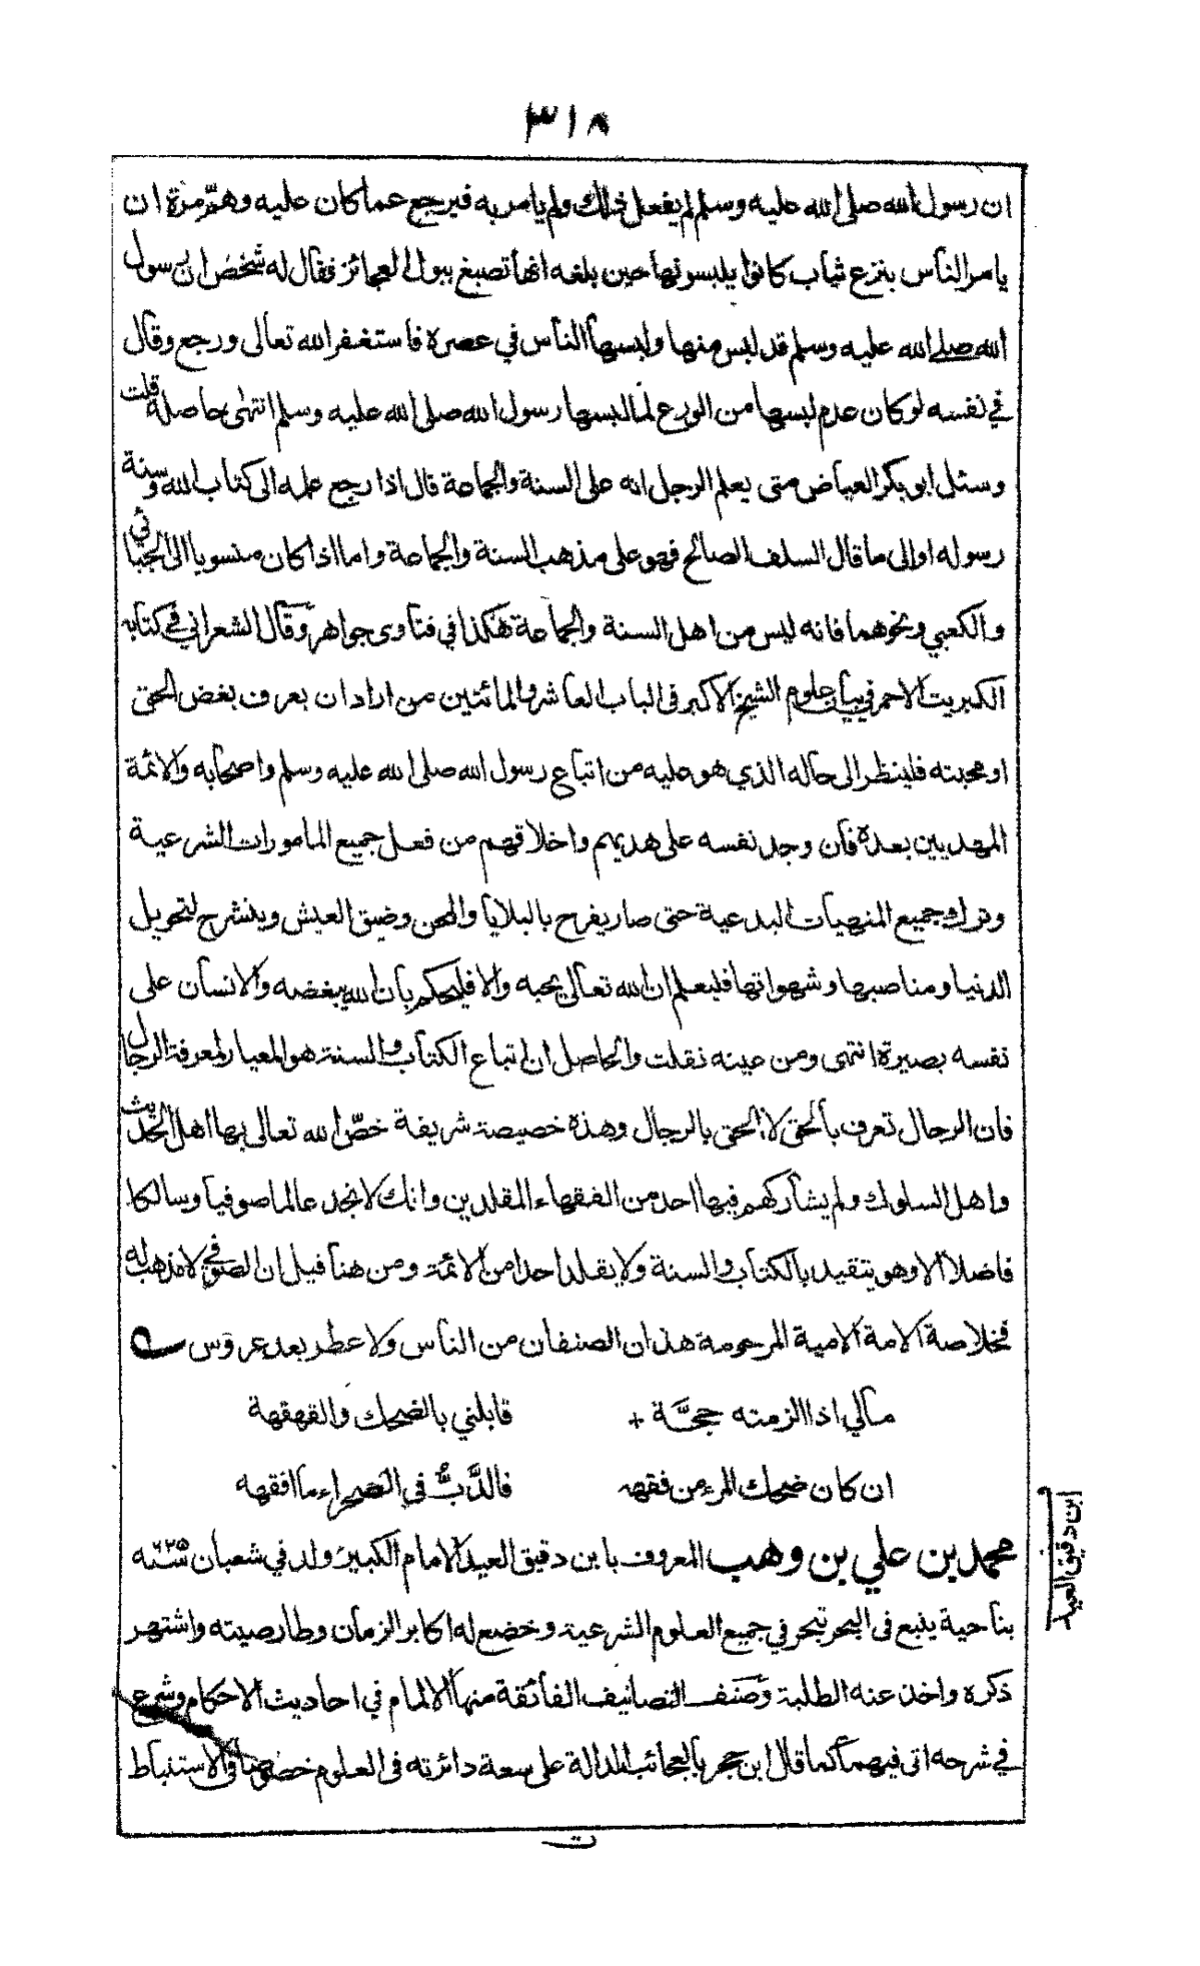 ٣١٨
ان رسول الله صلى الله عليه وسلم لم يفعل ذلك ولم يامر به فيرجع عما كان عليه وهمّ مرة ان
يامر الناس بنزع ثياب كانوا يلبسونها حين بلغه انها تصبغ ببول العجائز فقال له شخص ان رسول
الله صلى الله عليه وسلم قد لبس منها ولبسها الناس في عصره فاستغفر الله تعالى ورجع وقال
في نفسه لو كان عدم لبسها من الورع لما لبسها رسول الله صلى الله عليه وسلم انتهى حاصله قلت
وسئل ابو بكر العياض متى يعلم الرجل انه على السنة والجماعة قال اذا رجع عمله الى كتاب الله وسنة
رسوله او الى ما قال السلف الصالح فهو على مذهب السنة والجماعة واما اذا كان منسوبا الى الجبائي
والكعبي ونحوهما فانه ليس من اهل السنة والجماعة هكذا في فتاوى جواهر وقال الشعراني في كتابه
الكبريت الاحمر في بيان علوم الشيخ الاكبر فى الباب العاشر والمائتين من اراد ان يعرف بغض الحق
او محبته فلينظر الى حاله الذي هو عليه من اتباع رسول الله صلى الله عليه وسلم واصحابه والائمة
المهديين بعده فان وجد نفسه على هديهم واخلاقهم من فعل جميع المامورات الشرعية
وترك جميع المنهيات البدعية حتى صار يفرح بالبلايا والمحن وضيق العيش وينشرح لتحويل
الدنيا ومناصبها وشهواتها فليعلم ان الله تعالى يحبه والا فليحكم بان الله يبغضه والانسان على
نفسه بصيرة انتهى ومن عينه نقلت والحاصل ان اتباع الكتاب والسنة هو المعيار لمعرفة الرجال
فان الرجال تعرف بالحق لا الحق بالرجال وهذه خصيصة شريفة خصّ الله تعالى بها اهل الحديث
واهل السلوك ولم يشاركهم فيها احد من الفقهاء المقلدين وانك لا تجد عالما صوفيا وسالكا
فاضلا الا وهو يتقيد بالكتاب والسنة ولا يقلد احدا من الائمة ومن هنا قيل ان الصوفي لا مذهب له
فخلاصة الامة الامية المرحومة هذان الصنفان من الناس ولا عطر بعد عروس
مالي اذا الزمته حجّة + قابلني بالضحك والقهقهة
ان كان ضحك المرء من فقهه فالدّبّ في الصحراء ما افقهه
محمد بن علي بن وهب المعروف بابن دقيق العيد الامام الكبير ولد في شعبان سنة ٦٢٥
بناحية ينبع فى البحر تبحر في جميع العلوم الشرعية وخضع له اكابر الزمان وطار صيته واشتهر
ذكره واخذ عنه الطلبة وصنف التصانيف الفائقة منها الالمام في احاديث الاحكام وشرع
في شرحه اتى فيهما كما قال ابن حجر بالعجائب الدالة على سعة دائرته فى العلوم خصوصا في الاستنباط
ابن دقيق العيد